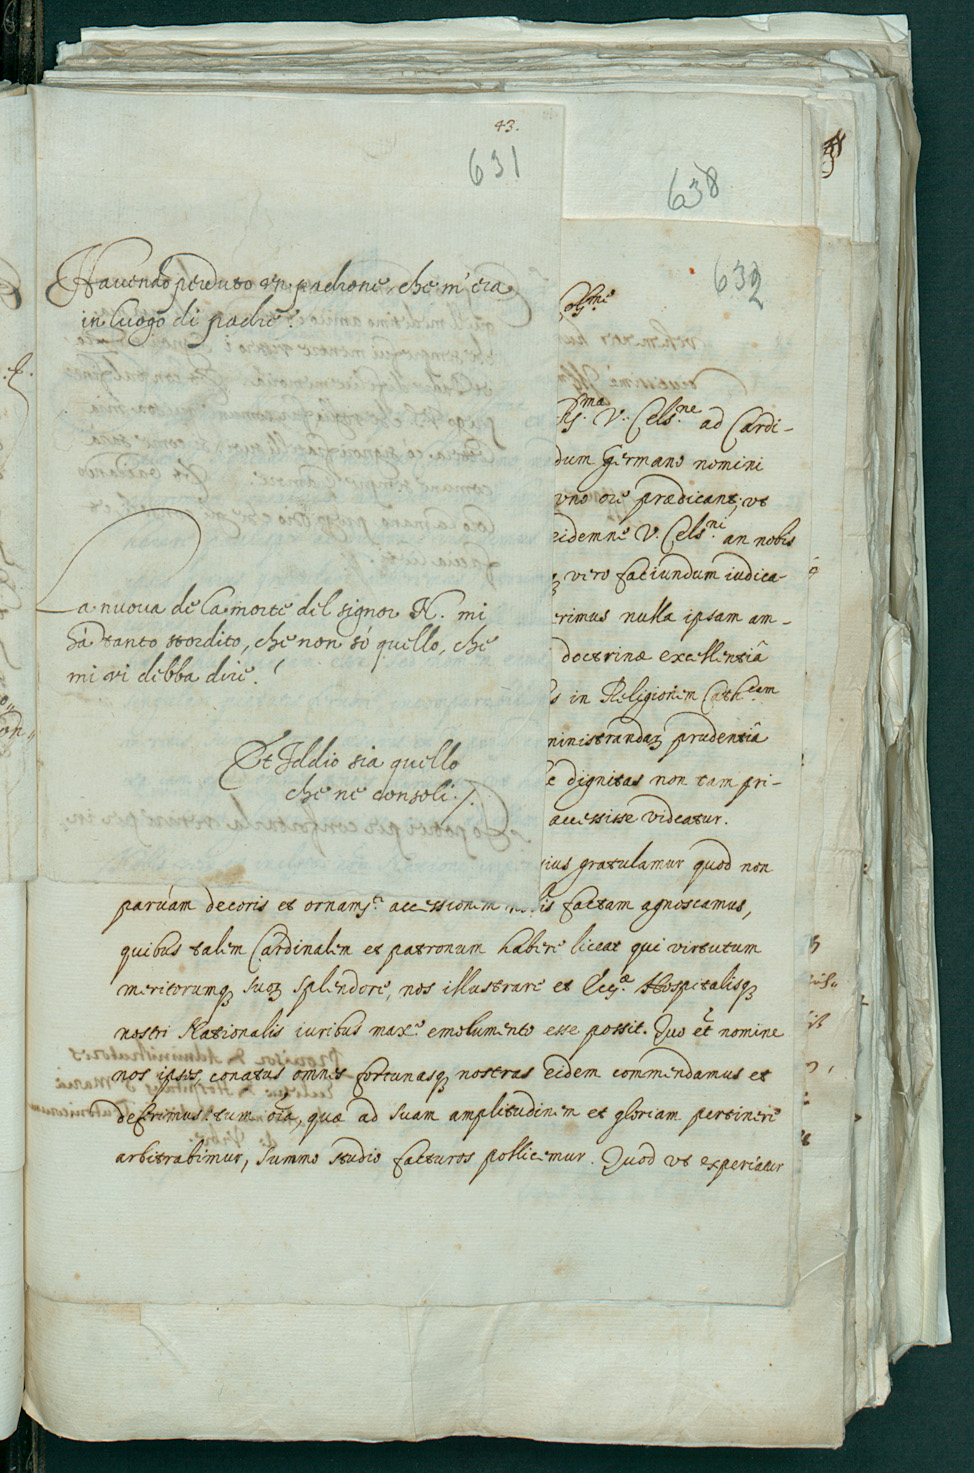 43.
631
638
632
Havendo perduto un padrone, che m'era
in luogo di padre.
La nuova de la morte del signor N. mi
hà tanto stordito, che non sò quello, che
mi vi debba dire.
Et Iddio sia quello
che ne consoli.
V. Cels.ne ad Cardi-
dum Germano nomini
uno ore prædicant, ut
eidemne V. Cels.ni an nobis
vero faciundum iudica-
erimus nulla ipsam am-
doctrinæ excellentiâ
s in Religionem Cath.cam
ministrandaq prudentiâ
e dignitas non tam pri-
accessisse videatur.
ius gratulamur quod non
parvam decoris et ornam.ti accessionem nobis factam agnoscamus,
quibus talem Cardinalem et patronum habere liceat qui virtutum
meritorumq suoq splendore, nos illustrare et Hospitalisq
nostri Nationalis iuribus maxe emolumento esse possit. Quo et nomine
nos ipsos conatus omnes fortunasq nostras eidem commendamus et
deferimus: tum oîa, quæ ad suam amplitudinem et gloriam pertinere
arbitrabimur, summo studio facturos pollicemur. Quod ut experiatur